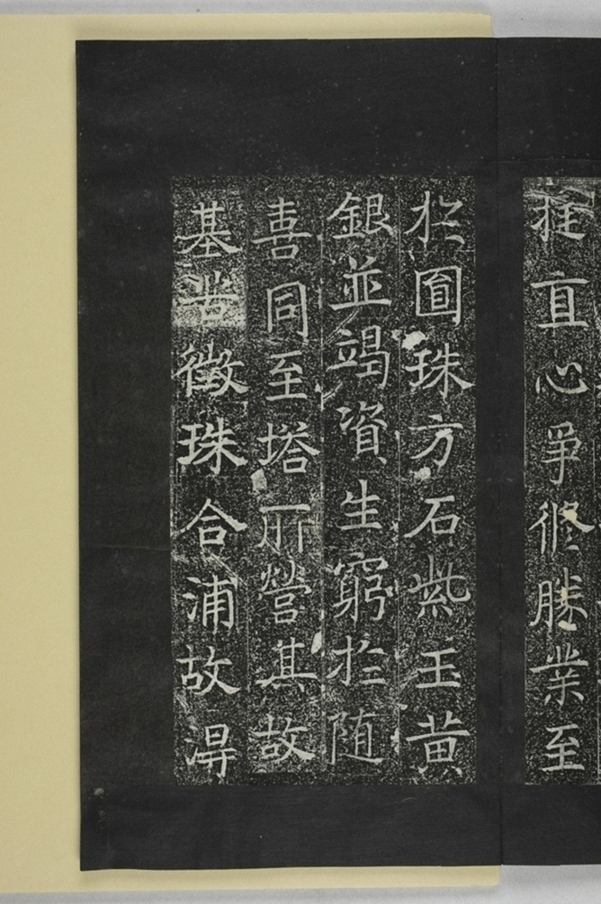 挺直心爭修勝業至
於圓珠方石紫玉黃
銀並竭資生窮於随
喜同至塔所營其故
基昔徵珠合浦故淂